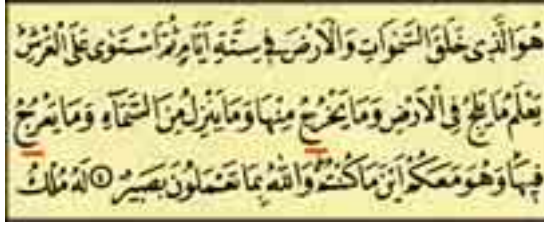 هُوَ الَّذِى خَلَقَ السَّمٰوَاتِ وَالْاَرْضَ فِى سِتَّةِ اَيَّامٍ ثُمَّ اسْتَوٰى عَلَى الْعَرْشِ
يَعْلَمُ مَا يَلِجُ فِى الْاَرْضِ وَمَا يَخْرُجُ مِنْهَا وَمَا يَنْزِلُ مِنَ السَّمَآءِ وَمَا يَعْرُجُ
فِيهَا وَهُوَ مَعَكُمْ اَيْنَ مَا كُنْتُمْ وَاللّٰهُ بِمَا تَعْمَلُونَ بَصِيرٌ ۝٤ لَهُ مُلْكُ